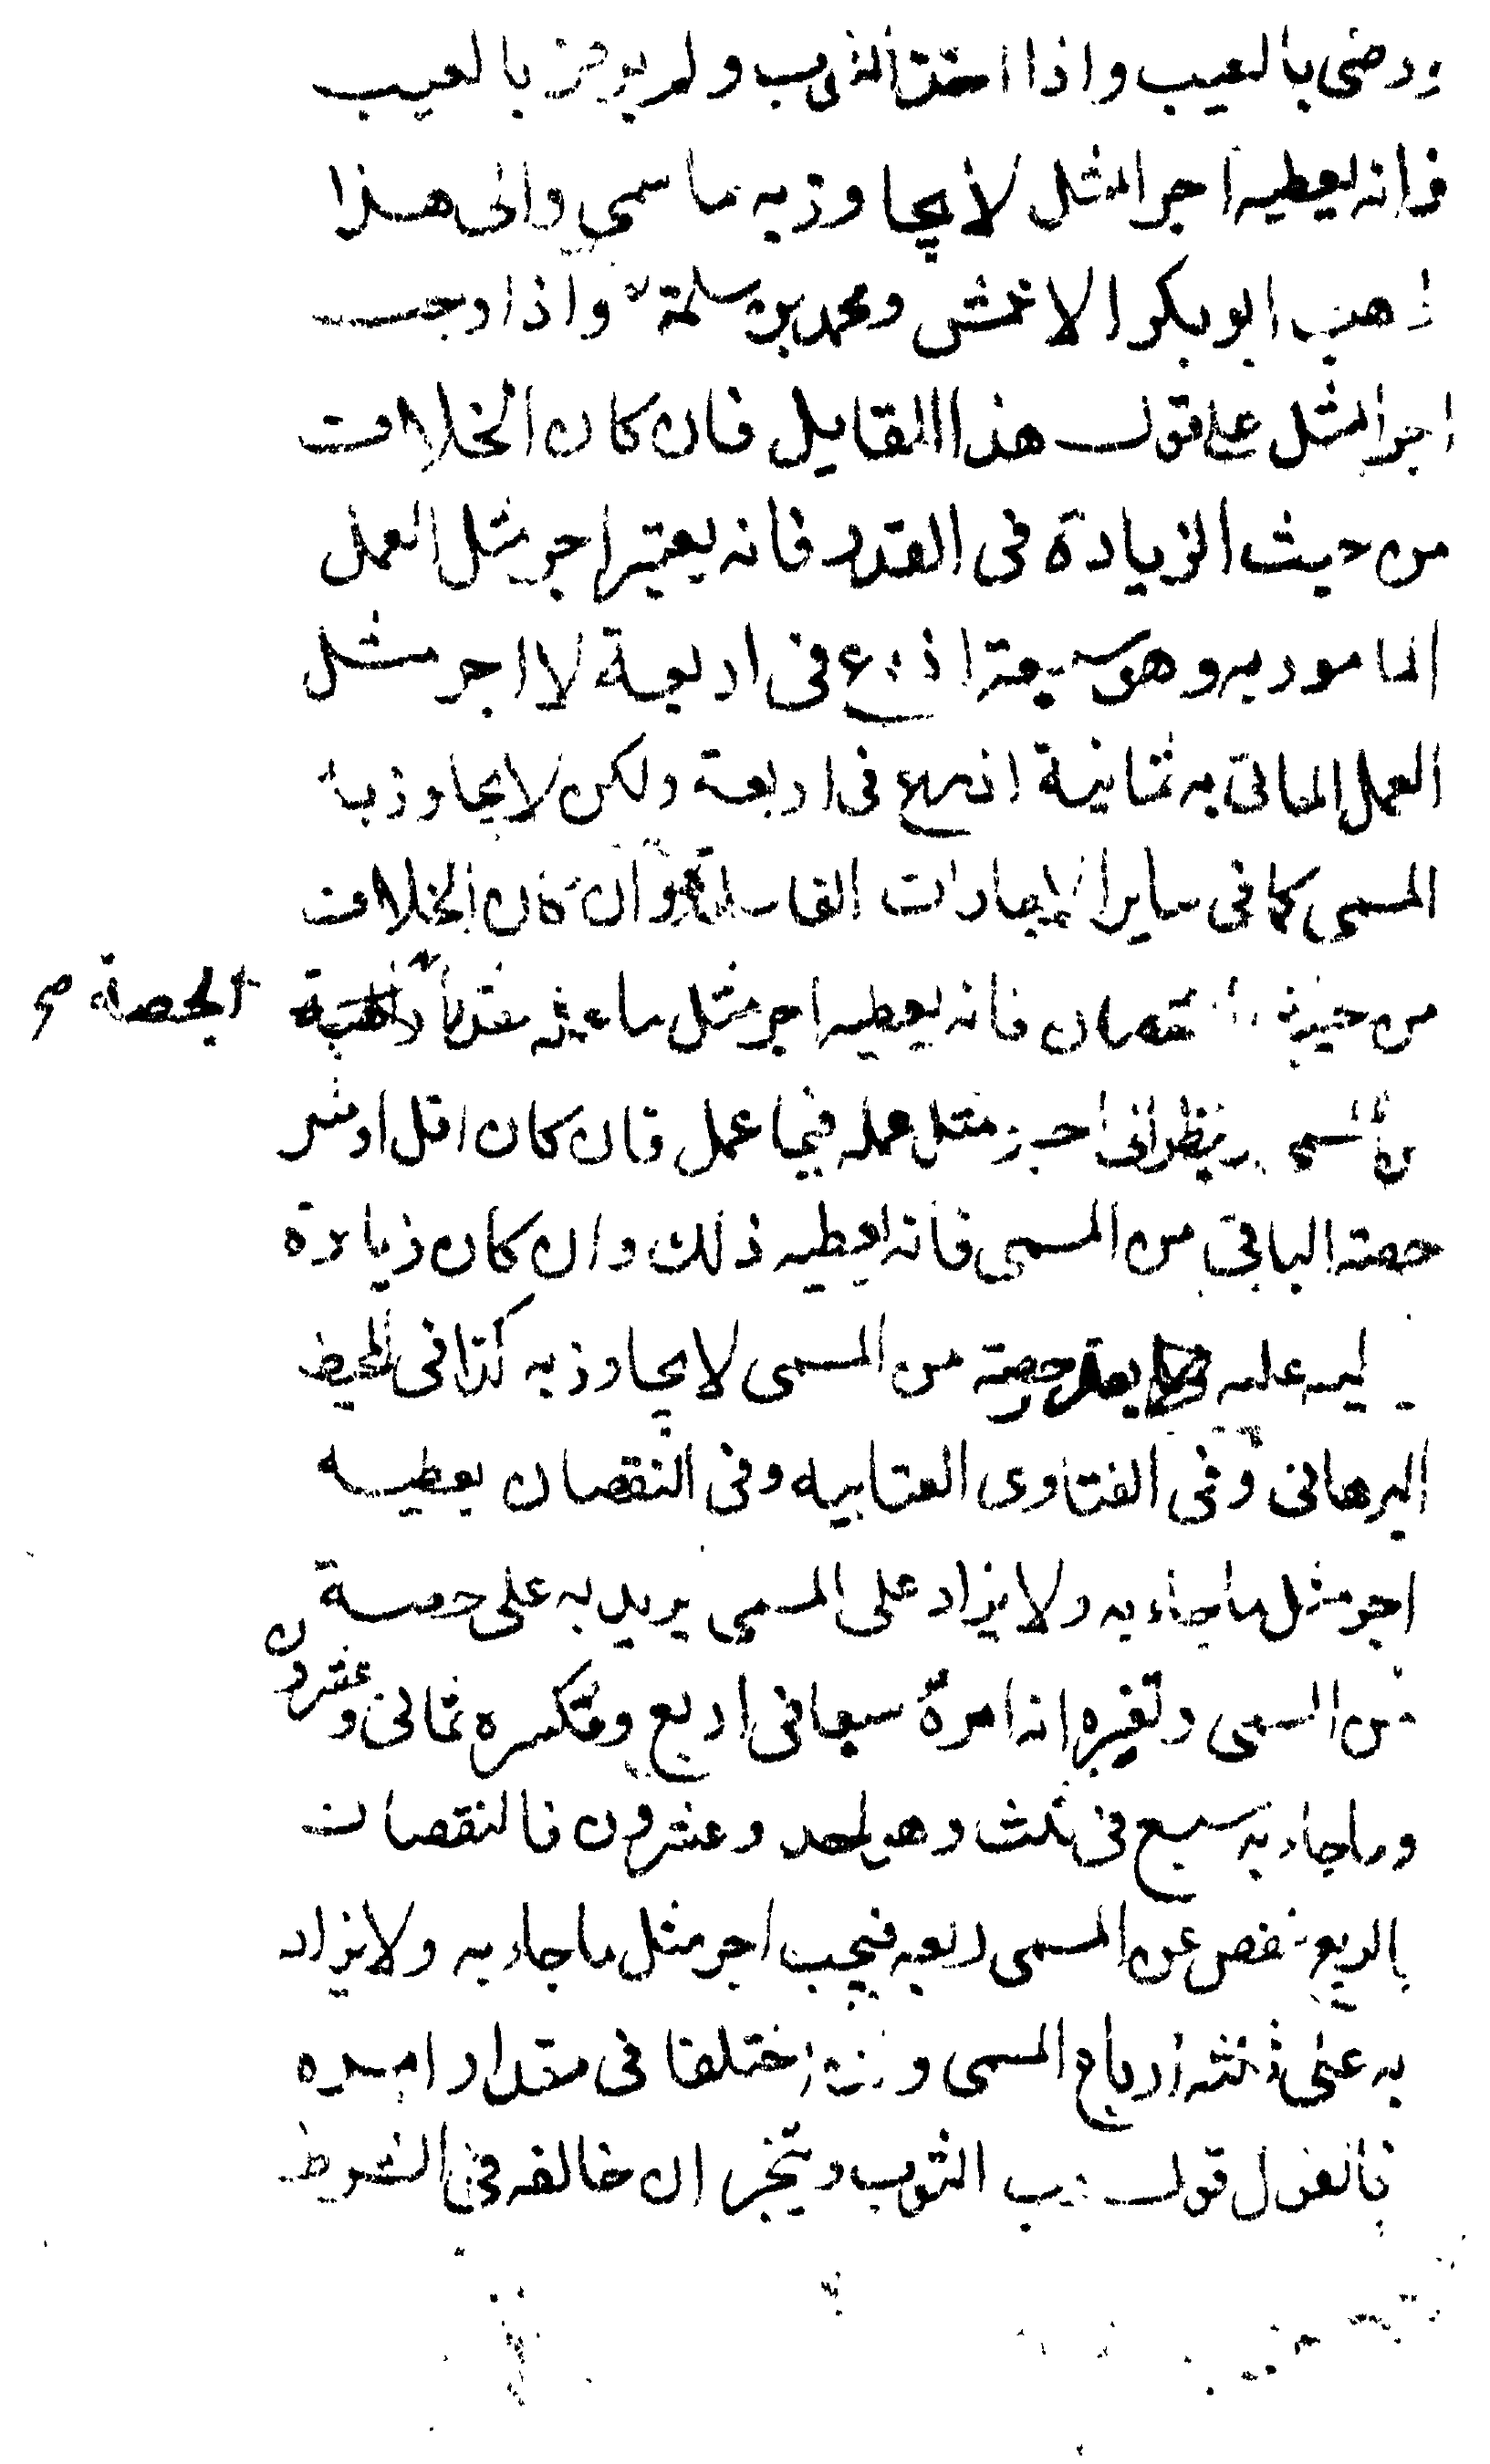 ورضى بالعيب واذا اخذ الثوب ولم يرض بالعيب
فانه يعطيه اجر المثل لا يجاوز به ما سمى والى هذا
ذهب ابو بكر الاعمش ومحمد بن سلمة واذا وجب
اجر المثل على قول هذا القايل فان كان الخلاف
من حيث الزيادة فى القدر فانه يعتبر اجر مثل العمل
المامور به وهو سبعة اذرع فى اربعة لا اجر مثل
العمل الماتى به ثمانية اذرع فى اربعة ولكن لا يجاوز به
المسمى كما فى ساير الاجارات الفاسدة وان كان الخلاف
من حيث النقصان فانه يعطيه اجر مثل ما عمله مقدرا
الحصة صح
من المسمى ينظر الى اجر مثل عمله فيما عمل فان كان اقل او مثل
حصته الباقى من المسمى فانه يعطيه ذلك وان كان زيادة
ليه عليه حصته من المسمى لا يجاوز به كذا فى المحيط
البرهانى وفى الفتاوى العتابيه وفى النقصان يعطيه
اجر مثل ما جاء به ولا يزاد على المسمى يريد به على حصة
من المسمى وتفسيره انه امره سبعا فى اربع وتكسره ثمانى وعشرون
وما جاء به سبع فى ثلث وهو احد وعشرون فالنقصان
بالربع نقص عن المسمى ربعه فيجب اجر مثل ما جاء به ولا يزاد
به على ثلثه ارباع المسمى وان اختلفا فى مقدار امره
فالقول قول رب الثوب ويتخير ان خالفه فى الشرط